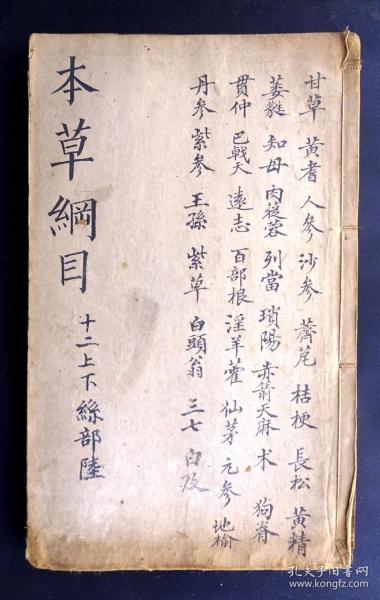 甘草 黃耆 人參 沙參 薺苨 桔梗 長松 黃精
萎蕤 知母 肉蓯蓉 列當 瑣陽 赤箭天麻 术 狗脊
貫仲 巴戟天 遠志 百部根 淫羊藿 仙茅 元參 地榆
丹參 紫參 王孫 紫草 白頭翁 三七 白及
本草綱目
十二上下 絲部陸
孔夫子旧书网
www.kongfz.com